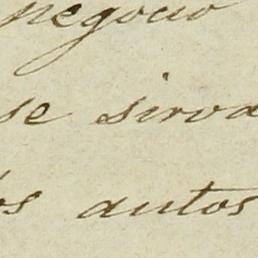 negocio
se sirva
os autos